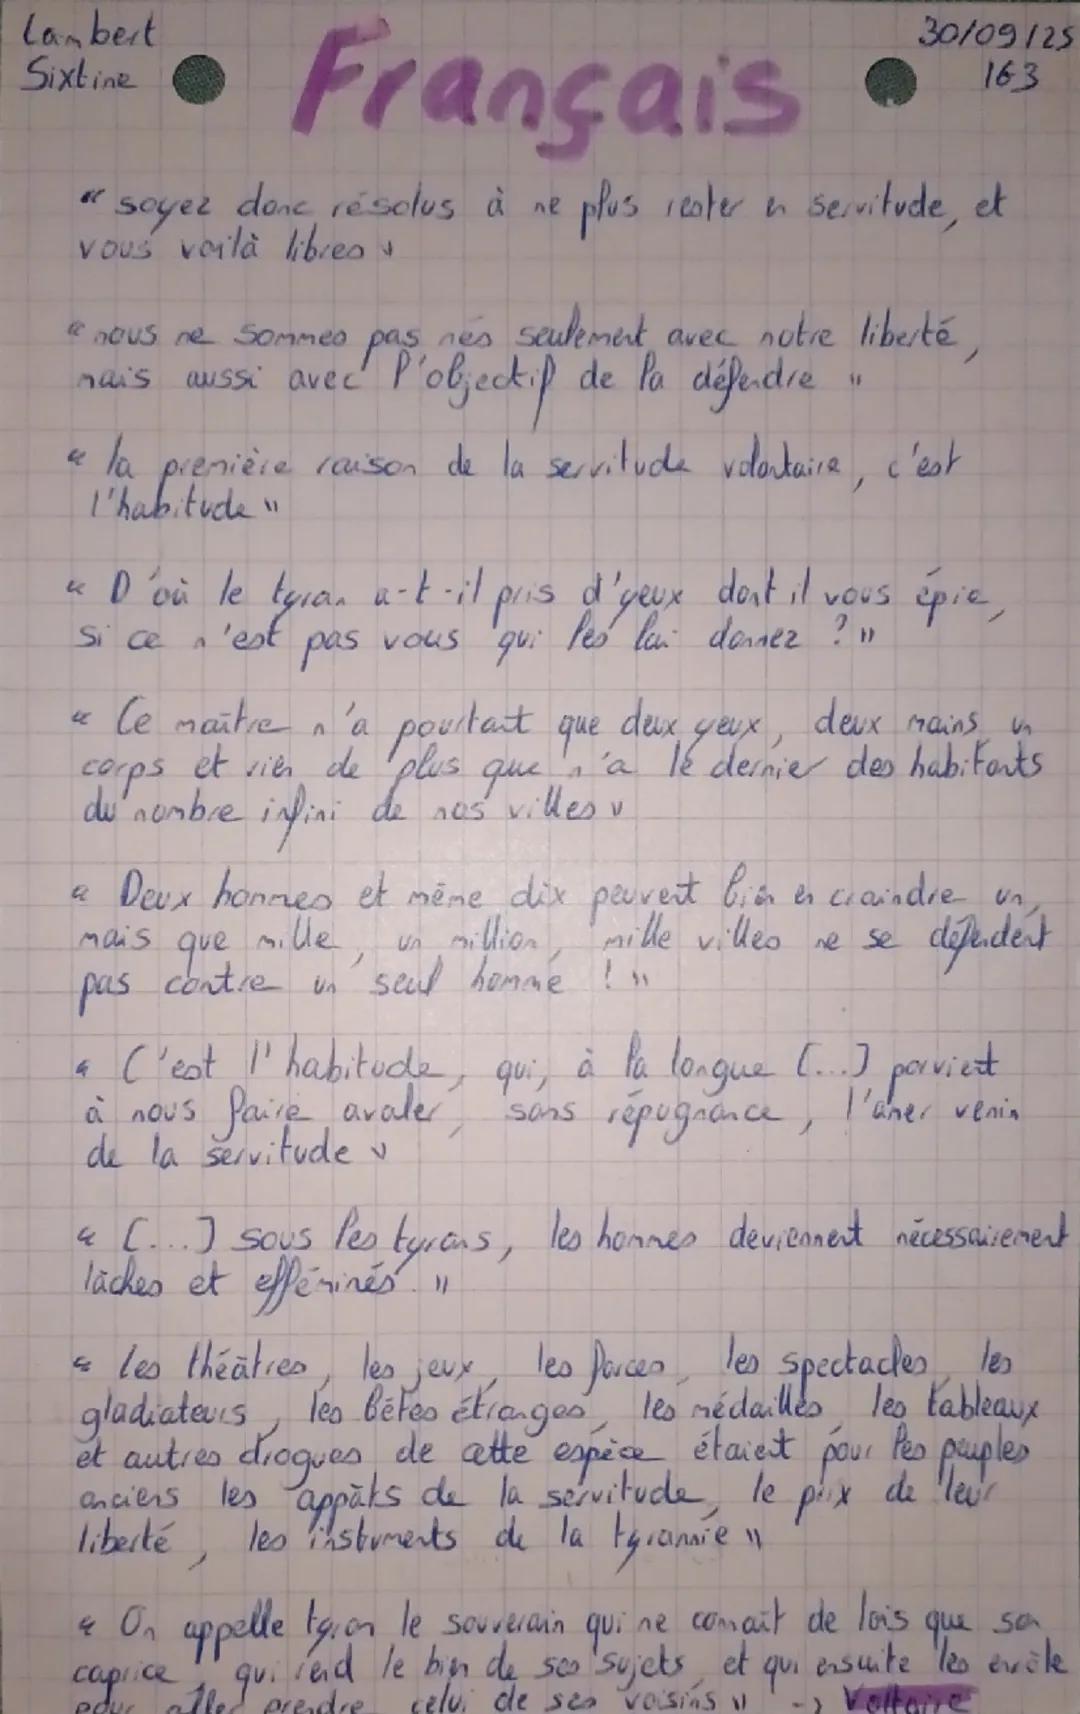 Lambert
Sixtine
Français
30/09/25
1G3
" soyez donc résolus à ne plus rester en servitude, et
vous voilà libres "
" nous ne sommes pas nés seulement avec notre liberté,
mais aussi avec l'objectif de la défendre "
" la première raison de la servitude volontaire, c'est
l'habitude "
" D'où le tyran a-t-il pris d'yeux dont il vous épie,
si ce n'est pas vous qui les lui donnez ? "
" Ce maître n'a pourtant que deux yeux, deux mains, un
corps et rien de plus que n'a le dernier des habitants
du nombre infini de nos villes "
" Deux hommes et même dix peuvent bien en craindre un,
mais que mille, un million, mille villes ne se défendent
pas contre un seul homme ! "
" C'est l'habitude, qui, à la longue [...] parvient
à nous faire avaler, sans répugnance, l'amer venin
de la servitude "
" [...] sous les tyrans, les hommes deviennent nécessairement
lâches et efféminés. "
" les théâtres, les jeux, les farces, les spectacles, les
gladiateurs, les bêtes étranges, les médailles, les tableaux
et autres drogues de cette espèce étaient pour les peuples
anciens les appâts de la servitude, le prix de leur
liberté, les instuments de la tyrannie "
" On appelle tyran le souverain qui ne connait de lois que son
caprice, qui rend le bien de ses sujets, et qui ensuite les enrôle
pour aller prendre celui de ses voisins " -> Voltaire